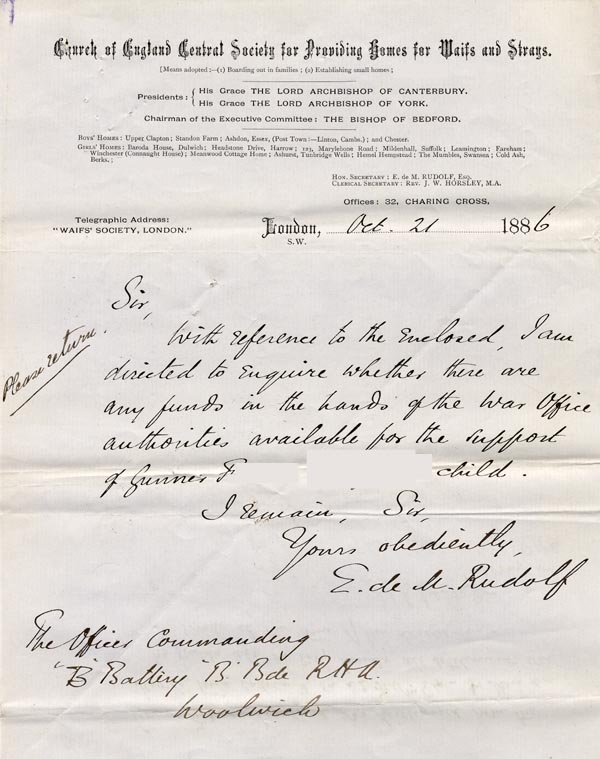 Church of England Central Society for Providing Homes for Waifs and Strays.
[Means adopted:—(1) Boarding out in families; (2) Establishing small homes;
Presidents: { His Grace THE LORD ARCHBISHOP OF CANTERBURY.
His Grace THE LORD ARCHBISHOP OF YORK.
Chairman of the Executive Committee: THE BISHOP OF BEDFORD.
BOYS' HOMES: Upper Clapton; Standon Farm; Ashdon, Essex, (Post Town:—Linton, Cambs.); and Chester.
GIRLS' HOMES: Baroda House, Dulwich; Headstone Drive, Harrow; 123, Marylebone Road; Mildenhall, Suffolk; Leamington; Fareham;
Winchester (Connaught House); Meanwood Cottage Home; Ashurst, Tunbridge Wells; Hemel Hempstead; The Mumbles, Swansea; Cold Ash,
Berks.;
HON. SECRETARY: E. DE M. RUDOLF, ESQ.
CLERICAL SECRETARY: REV. J. W. HORSLEY, M.A.
Offices: 32, CHARING CROSS,
Telegraphic Address:
"WAIFS' SOCIETY, LONDON."
London, Oct. 21 1886
S.W.
Please return.
Sir,
With reference to the Enclosed, I am
directed to Enquire whether there are
any funds in the hands of the War Office
authorities available for the support
of Gunner F child.
I remain, Sir,
Yours obediently,
E. de M. Rudolf
The Officer Commanding
"B" Battery "B" Bde R.H.A.
Woolwich